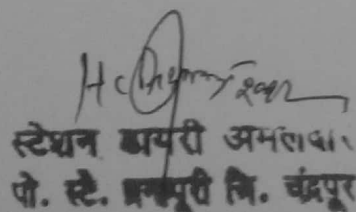 स्टेशन डायरी अमलदार
पो. स्टे. ब्रम्हपूरी जि. चंद्रपूर